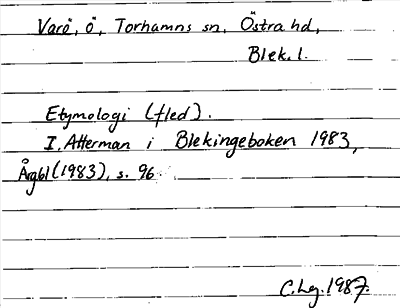 Varö, ö, Torhamns sn, Östra hd,
Blek. l.
Etymologi (fled).
I. Atterman i Blekingeboken 1983,
Årgbl (1983), s. 96.
C. Lg. 1987.